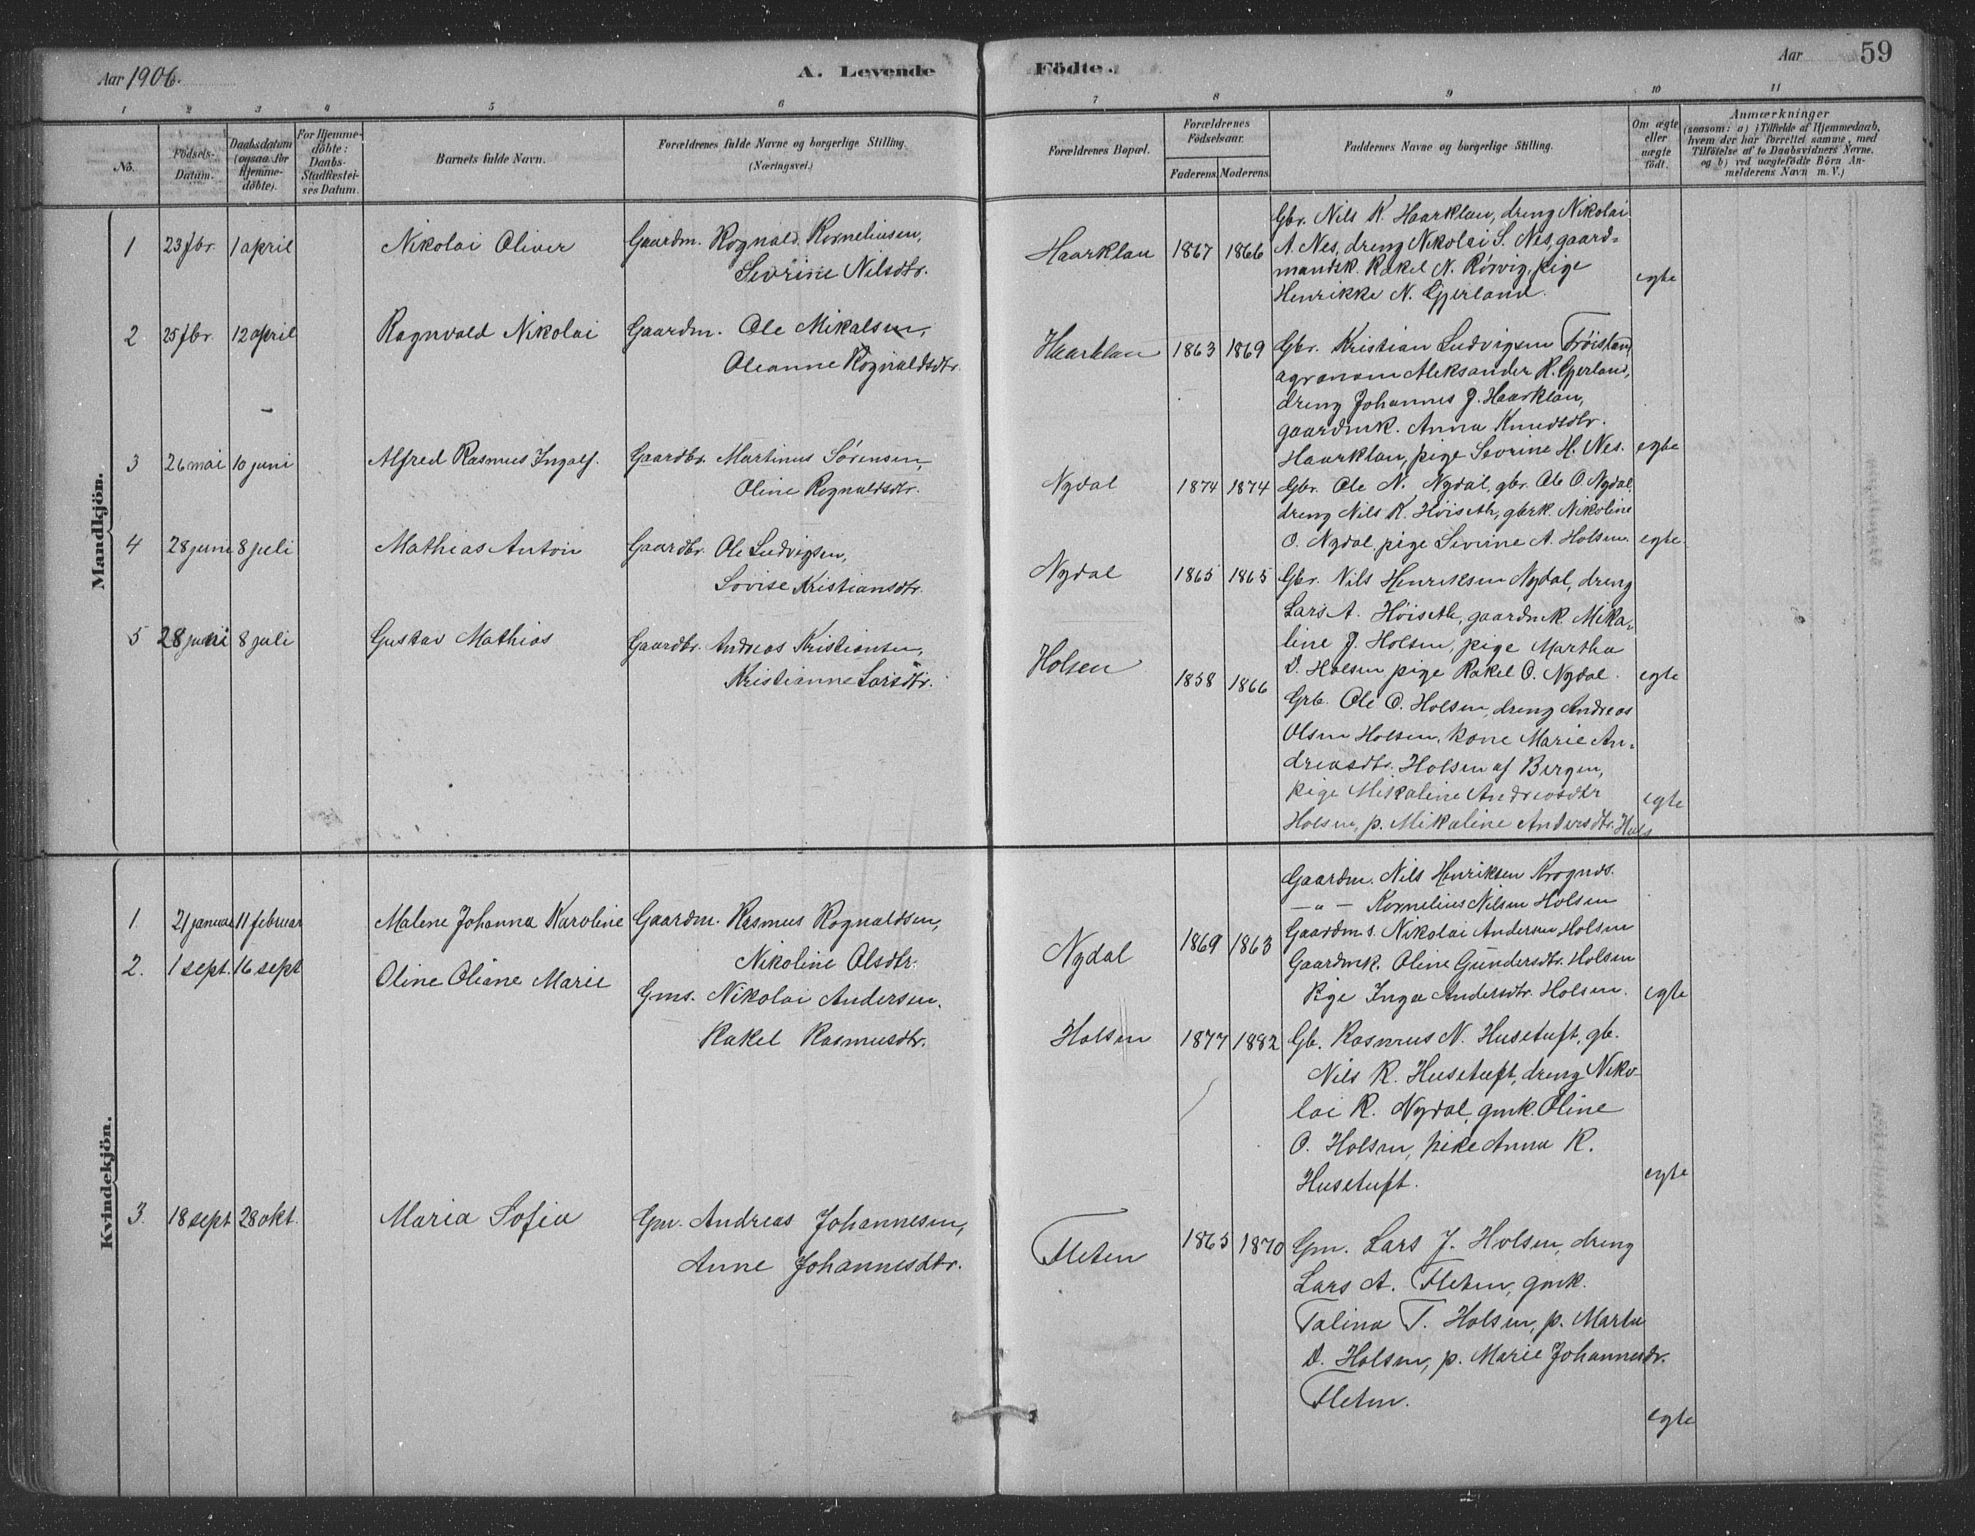 Aar 1906.
A. Levende
Födte.
Aar
59
1
2
3
4
5
6
7
8
9
10
11
No.
Födsels-
Datum.
Daabsdatum
(ogsaa for
Hjemme-
döbte).
For Hjemme-
döbte:
Daabs-
Stadfæstel-
ses Datum.
Barnets fulde Navn.
Forældrenes fulde Navne og borgerlige Stilling.
(Næringsvei.)
Forældrenes Bopæl.
Forældrenes
Födselsaar.
Faderens.
Moderens.
Faddernes Navne og borgerlige Stilling.
Om ægte
eller
uægte
födt.
Anmærkninger
(saasom: a) i Tilfælde af Hjemmedaab,
hvem der har forrettet samme, med
Tilföielse af to Daabsvidners Navne.
og b) ved uægtefödte Börn An-
melderens Navn m. V.)
Mandkjön.
1
23 fbr.
1 april
Nikolai Oliver
Gaardm. Rognald. Korneliusen,
Sevrine Nilsdtr.
Haarklau
1867
1866
Gbr. Nils K. Haarklau, dreng Nikolai
A. Nes, dreng Nikolai S. Nes, gaard-
mandsk. Rakel N. Rörvig, pige
Henrikke N. Gjerland.
egte
2
25 fbr.
12 april
Ragnvald Nikolai
Gaardm. Ole Mikalsen,
Oleanne Rognaldsdtr.
Haarklau
1863
1869
Gbr. Kristian Ludvigsen
agronom Aleksander R. Gjerland,
dreng Johannes J. Haarklau,
gaardmk. Anna Knudsdtr.
Haarklau, pige Sevrine H. Nes.
egte
3
26 mai
10 juni
Alfred Rasmus Ingolf.
Gaardbr. Martinus Sørensen,
Oline Rognaldsdtr.
Nydal
1874
1874
Gbr. Ole N. Nydal, gbr. Ole O. Nydal,
dreng Nils K. Høiseth, gbrk. Nikoline
O. Nydal, pige Sevrine A. Holsen.
egte.
4
28 juni
8 juli
Mathias Anton
Gaardbr. Ole Ludvigsen,
Lovise Kristiansdtr.
Nydal
1865
1865
Gbr. Nils Henriksen Nydal, dreng
Lars A. Høiseth, gaardmk. Mika-
line J. Holsen, pige Martha
D. Holsen pige Rakel O. Nydal.
egte
5
28 juni
8 juli
Gustav Mathias
Gaardbr. Andreas Kristiansen,
Kristianne Larsdtr.
Holsen
1858
1866
Grb. Ole O. Holsen, dreng Andreas
Olsen Holsen, kone Marie An-
dreasdtr. Holsen af Bergen,
pige Mikaline Andreasdtr
Holsen, p. Mikaline Andersdtr.
egte
Kvindekjön.
1.
21 januar
11 februar
Malene Johanna Karoline
Gaardm. Rasmus Rognaldsen,
Nikoline Olsdtr.
Nydal
1869
1863
Gaardm. Nils Henriksen
— " — Kornelius Nilsen Holsen
Gaardm s. Nikolai Andersen Holsen
Gaardmk. Oline Gundersdtr. Holsen
Pige Inga Andersdtr. Holsen.
egte
2.
1 sept.
16 sept
Oline Oliane Marie
Gms. Nikolai Andersen.
Rakel Rasmusdtr.
Holsen
1877
1882
Gb. Rasmus N. Husetuft, gb.
Nils R. Husetuft, dreng Niko-
lai R. Nydal, gmk. Oline
O. Holsen, pike Anna R.
Husetuft.
egte
3.
18 sept
28 okt.
Maria Sofia
Gm. Andreas Johannesen,
Anne Johannesdtr.
Fleten
1865
1870
Gm. Lars J. Holsen, dreng
Lars A. Fleten, gmk.
Talina T. Holsen, p. Marta
D. Holsen, p. Marie Johannesdtr.
Fleten.
egte